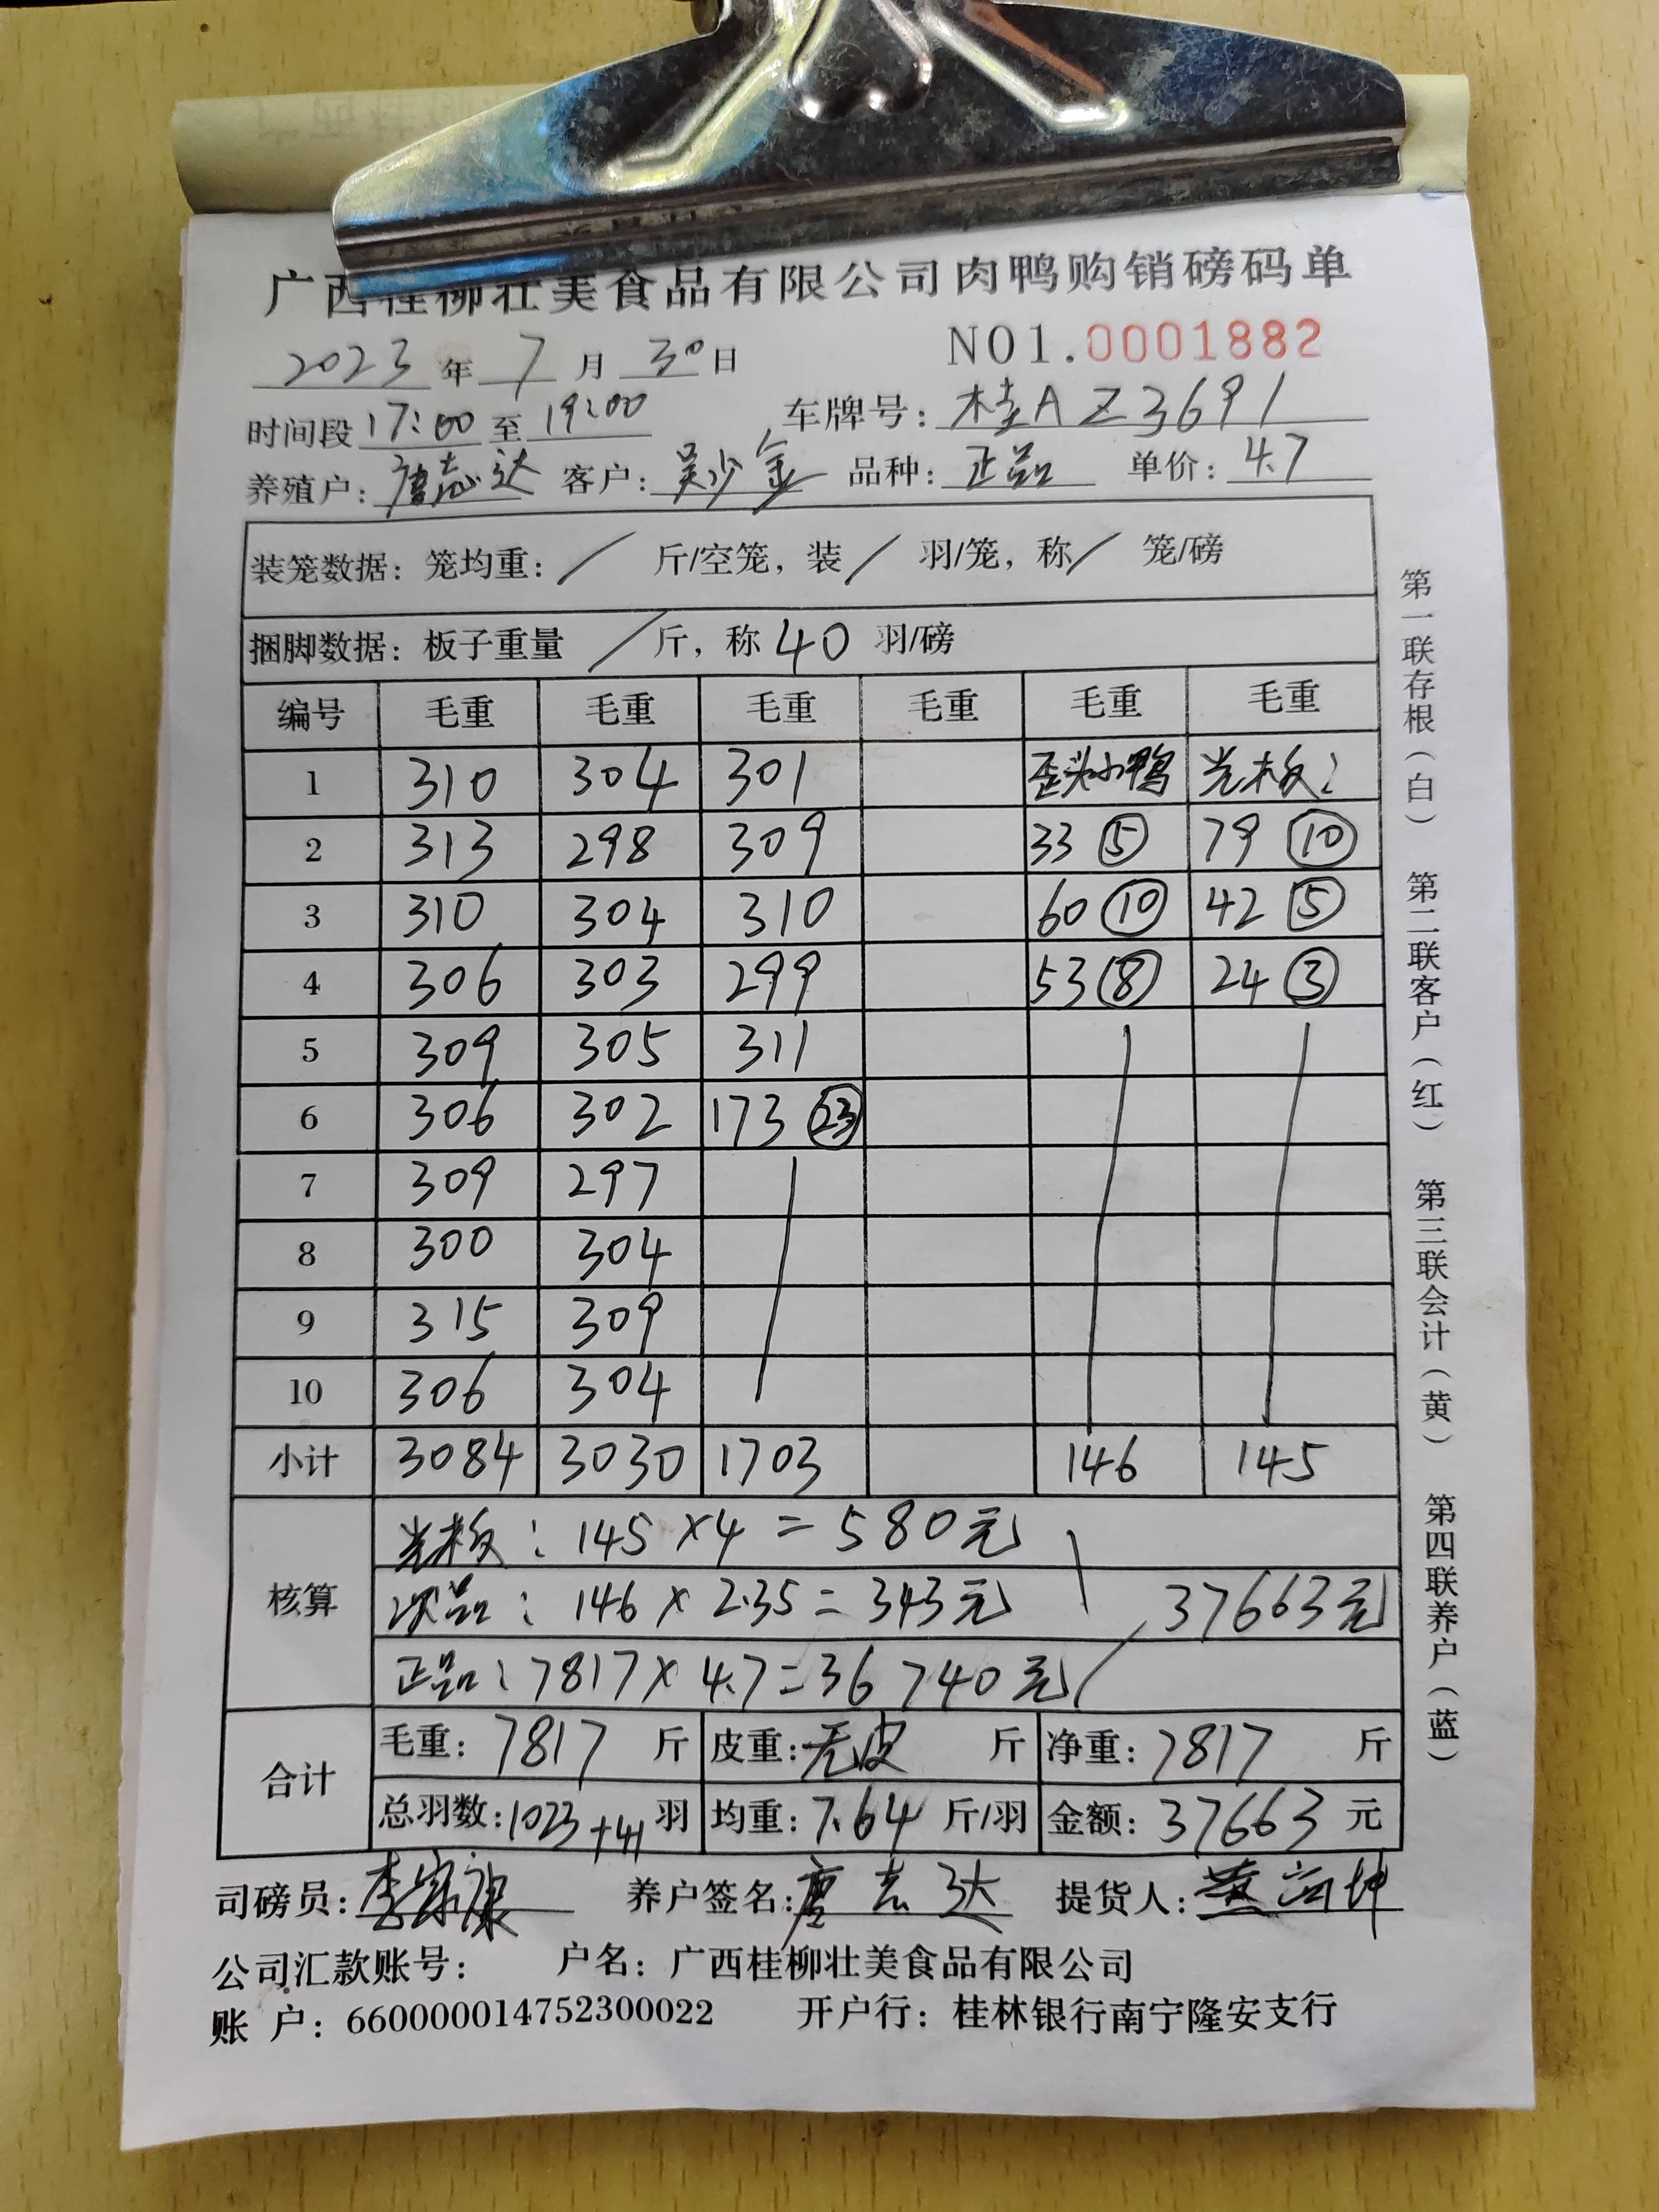 广西桂柳壮美食品有限公司肉鸭购销磅码单
2023年7月30日 NO1.0001882
时间段17:00至19:00 车牌号:桂AZ3691
养殖户:唐志达 客户:吴少金 品种:正品 单价:4.7
装笼数据:笼均重:/斤/空笼,装/羽/笼,称/笼/磅
捆脚数据:板子重量/斤,称40羽/磅
编号 毛重 毛重 毛重 毛重 毛重 毛重
1 310 304 301 歪头小鸭 光板:
2 313 298 309 33⑤ 79⑩
3 310 304 310 60⑩ 42⑤
4 306 303 299 53⑧ 24③
5 309 305 311
6 306 302 173㉓
7 309 297
8 300 304
9 315 309
10 306 304
小计 3084 3030 1703 146 145
核算
光板:145×4=580元
次品:146×2.35=343元 37663元
正品:7817×4.7=36740元
合计
毛重:7817斤 皮重:无皮斤 净重:7817斤
总羽数:1023+41羽 均重:7.64斤/羽 金额:37663元
司磅员:李家康 养户签名:唐志达 提货人:黄
公司汇款账号: 户名:广西桂柳壮美食品有限公司
账户:660000014752300022 开户行:桂林银行南宁隆安支行
第一联存根(白) 第二联客户(红) 第三联会计(黄) 第四联养户(蓝)